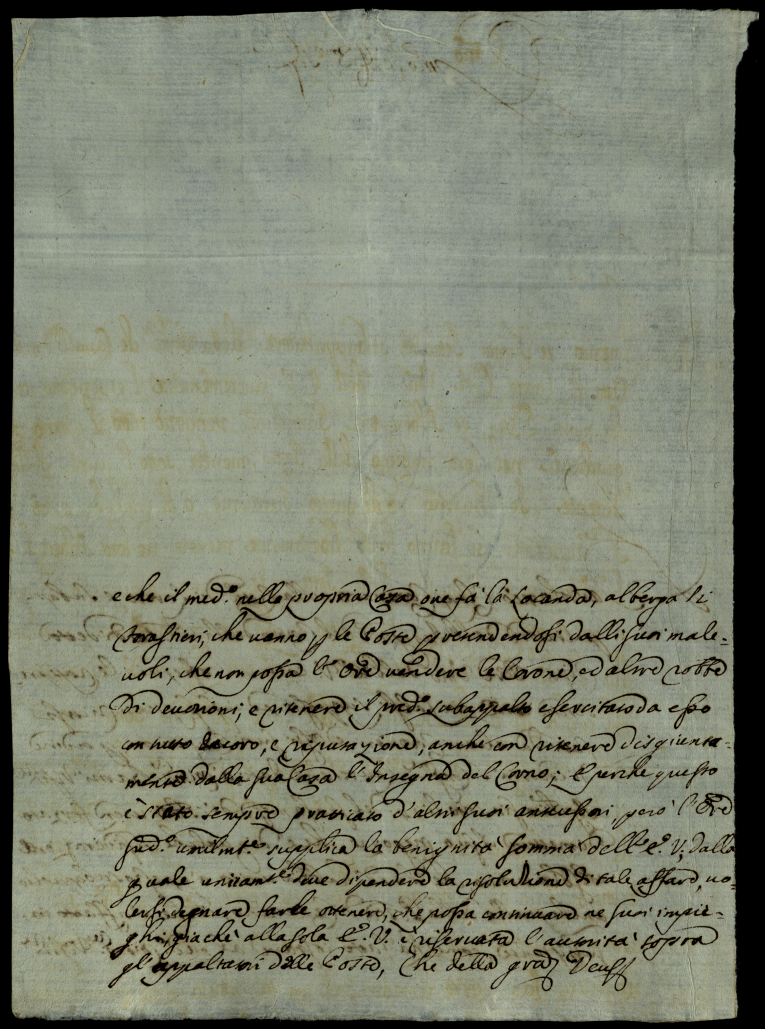 e che il med.º nella propria Casa, oue fà la Locanda, alberga li
forastieri, che uanno p le Poste pretendendosi dalli suoi male-
uoli, che non possa l'Ore uendere le Corone, ed altre robbe
di deuozioni, e ritenere il pred.º subappalto esercitato da esso
con tutto decoro, e riputazione, anche con ritenere disgiunta-
mente dalla sua Casa l'Insegna del Corno; E perche questo
è stato sempre pratticato d'altri suoi antecessori però l'Ore
sud.º umilmt.e supplica la benignità somma dell'E.V., dalla
quale unicamt.e deue dipendere la risoluzione di tale affare, uo-
lersi degnare farle ottenere, che possa continuare ne suoi impie-
ghi, giache alla sola E.V. è riseruata l'autorità sopra
gl'appaltatori delle Poste, Che della graz